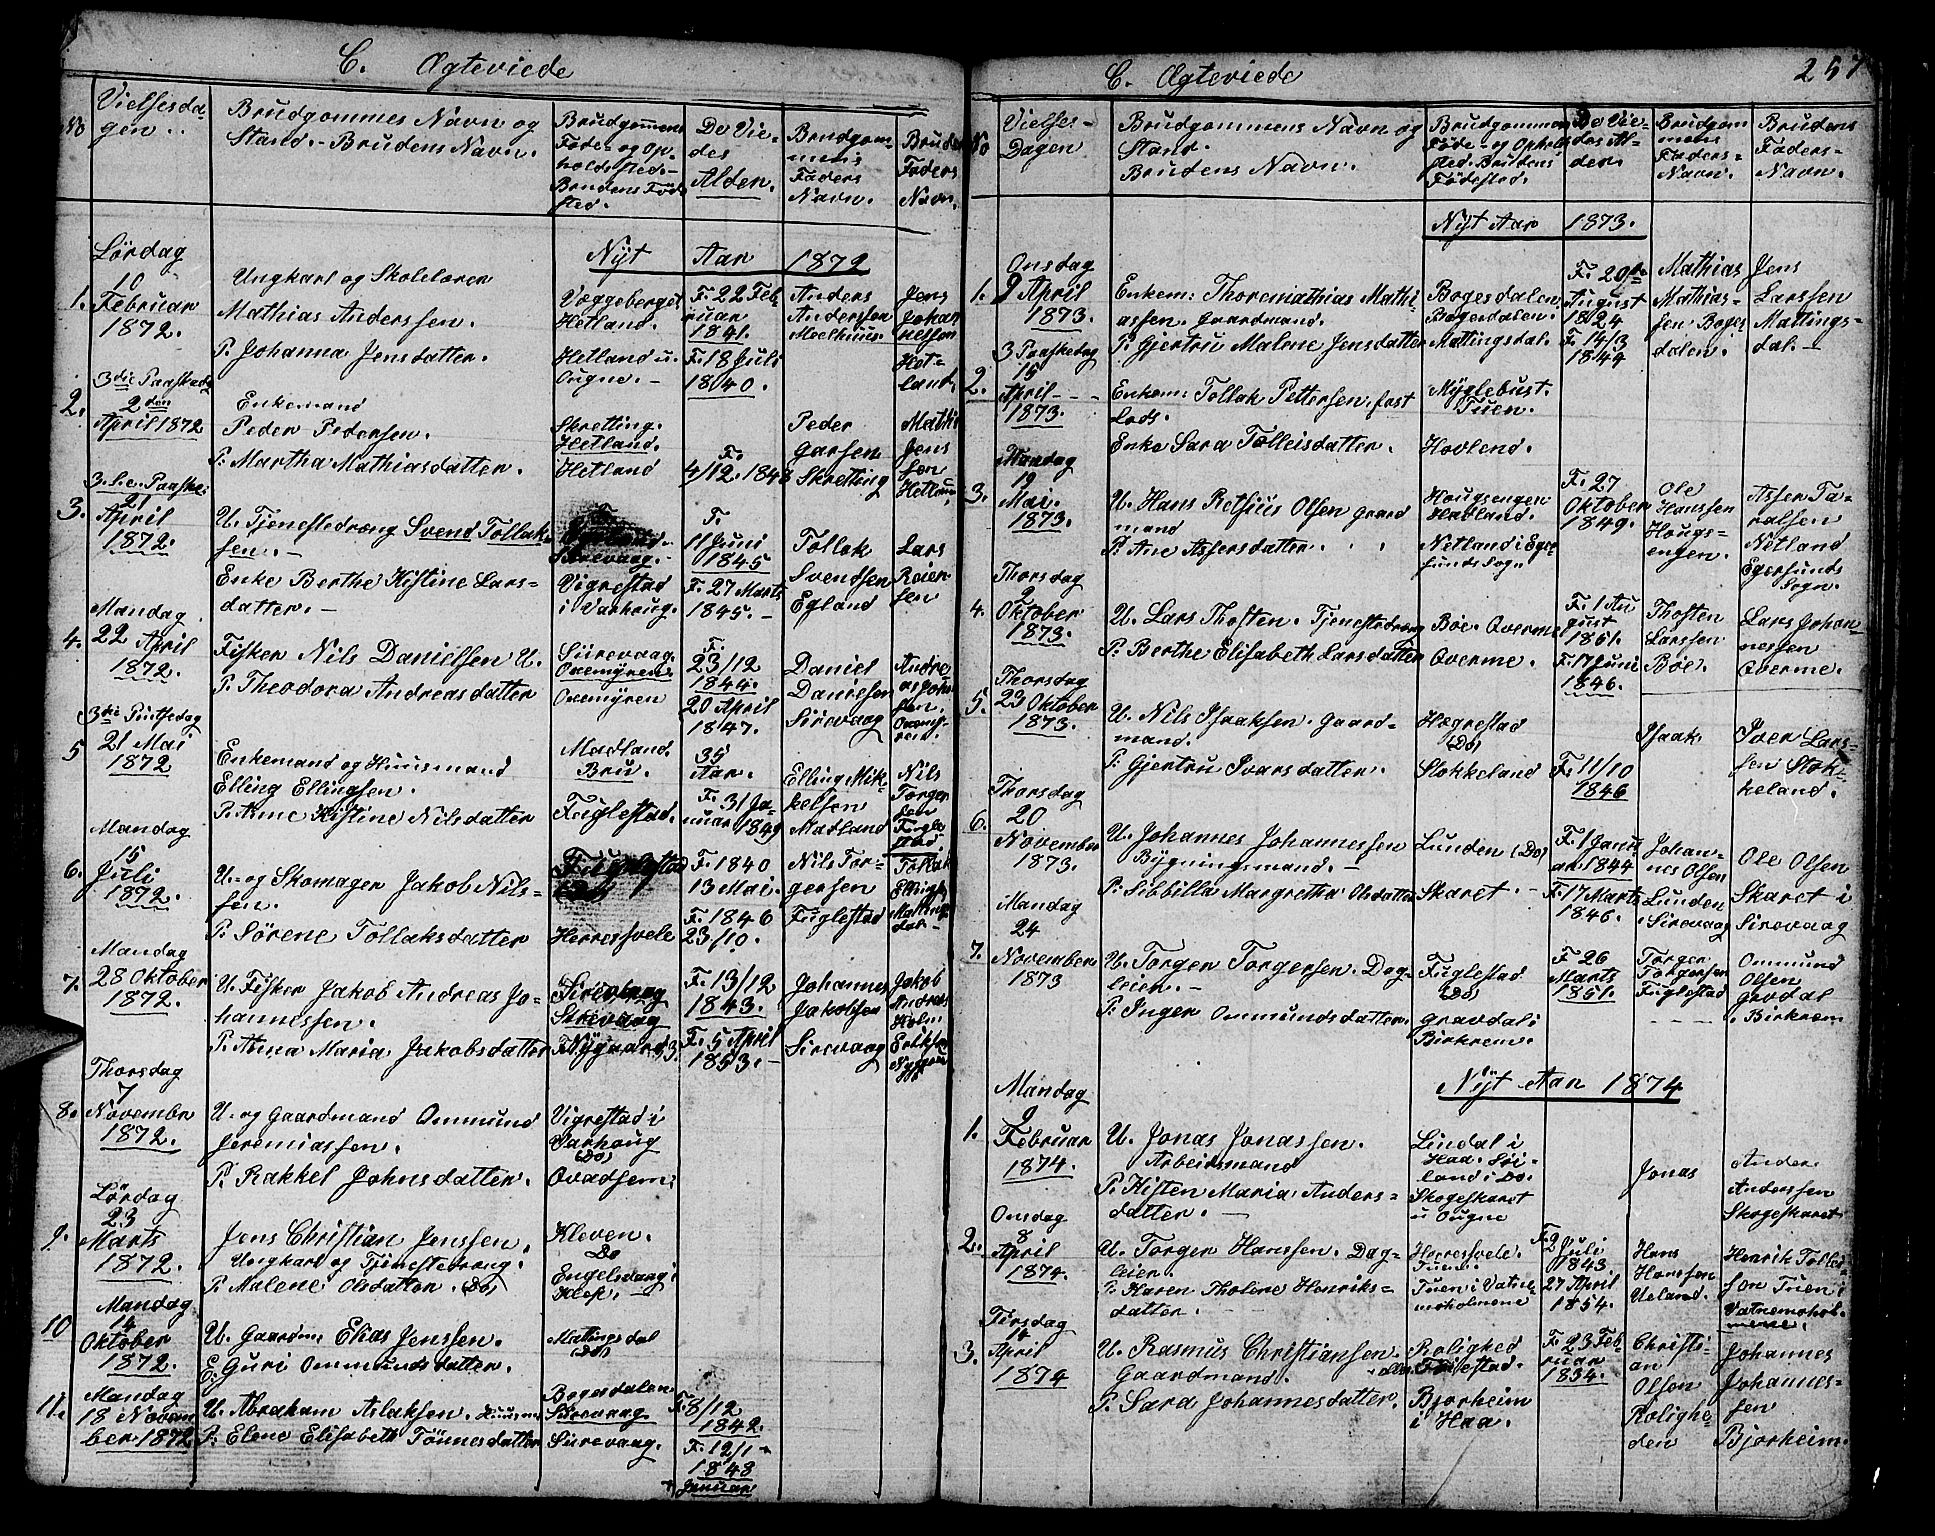 C. Ægteviede
No
Vielsesda-
gen..
Brudgommes Navn og
Stand. - Brudens Navn.
Brudgommens
Føde- og Op-
holdssted.-
Brudens Føde
sted.
De Vie-
des
Alden.
Brudgom-
mens
Faders
Navn.
Brudens
Faders
Navn.
Nyt Aar 1872
Lördag
10
1. Februar
1872.
Ungkarl og Skolelærer
Mathias Anderssen.
P. Johanna Jensdatter.
Væggeberget
Hetland.
Hetland i
Ougne. -
F. 22 Feb-
ruar
1841.
F. 18 Juli
1840.
Anders
Anderssen
Meelhuus
Jens
Johan
nessen
Het-
land.
3die Paaskedag
2. 2den
April 1872
Enkemand
Peder Pedersen.
P. Martha Mathiasdatter.
Skretting.
Hetland.
Hetland
F.
4/12. 1843
Peder
Garsen
Skretting
Mathi
Jens
sen
Hetland
3. S. e. Paaske.
21
3. April
1872.
U. Tjenestedreng Svend Tollak-
sen. -
Enke Berthe Kistine Lars-
datter. -
Sirevaag.
Vigrestad
i Varhaug.
F.
11 Juni
1845
F. 27 Marts
1845. -
Tollak
Svendsen
Egland
Lars
Reier-
sen
Mandag
4. 22 April
1872.
Fisker Nils Danielsen U.
P. Theodora Andreasdatter
Siirevaag.
Oxemyren.
Oxemyren
F.
23/12
1844.
20 April
1847.
Daniel
Danielsen
Sirevaag
Andre-
as John
sen.
Oxemy-
ren.
3die Pintsedag
5 21 Mai
1872
Enkemand og Huusmand
Elling Ellingsen.
P. Anne Kistine Nilsdatter
Madland.
Bru.
Fuglestad.
35
Aar.
F. 31 Ja-
nuar 1849
Elling Mik-
kelsen
Madland
Nils
Torger
sen
Fugle
stad.
Mandag
15
6. Juli
1872.
U. og Skomager Jakob Nils-
sen.
P. Sørene Tollaksdatter
Fuglestad
(Do)
Herressvele
F. 1840
13 Mai.
F. 1846
23/10.
Nils Tor-
gersen
Fuglestad
Tollak
Mattings
dal -
Mandag
7. 28 Oktober
1872.
U. Fisker Jakob Andreas Jo-
hannessen.
P. Anna Maria Jakobsdatter
Sirevaag
Sirevaag
Nygaard
F. 13/12
1843.
F. 5 April
1853. -
Johannes
Jakobsen
Sirevaag
Jakob
Andreas
Holm
Eriksen
Nygaard
Thorsdag
7
8. Novembr
1872.
U. og Gaardmand Ommund
Jeremiassen.
P. Rakkel Johnsdatter.
Vigrestad i
Varhaug
(Do)
Ovadsem.
Lördag
23
9. Marts
1872.
Jens Christian Jenssen.
Ungkarl og Tjenestedreng.
P. Malene Olsdatter. (Do)
Kleven.
Do
Engelsvaag i
Klep.
Mandag
14
10 Oktober
1872.
U. Gaardm: Elias Jenssen.
E. Guri Ommundsdatter.
Mattingsdal
(Do)
Mandag
11. 18 Novem
ber. 1872
U. Abraham Aslaksen. Huusm.
P. Elene Elisabeth Tönnesdatter
Bogesdalen
Sirevaag.
Siirevaag.
F. 8/12
1842.
F. 12/1
1848
Januar
C. Ægteviede
257
No
Vielses-
Dagen
Brudgommens Navn og
Stand.
Brudens Navn.
Brudgommens
Føde- og Ophold
sted. Brudens
Fødested.
De Vie-
des Al-
der.
Brudgom
mens
Faders-
Navn.
Brudens
Faders-
Navn.
Nyt Aar 1873.
Onsdag
1. 9 April
1873.
Enkem: Thoremathias Mathi
assen. Gaardmand.
P. Gjertru Malene Jensdatter
Bogesdalen.
Bogesdalen.
Mattingsdal.
F. 29de
August
1824
F. 14/3
1844
Mathias
Mathias-
sen Boges
dalen.
Jens
Larssen
Mattings-
dal. -
3 Paaskedag
15
2. April
1873.
Enkem: Tollak Pettersen. fast
Lods.
Enke Sara Tolleisdatter.
Myglebust.
Tuen.
Hovlend.
Mandag
19
3. Mai.
1873.
U. Hans Retsius Olsen Gaard
mand
P. Ane Assersdatter.
Hougsengen
Hadland.
Netland i Eger
sunds Sogn
F. 27
Oktober
1849.
Ole
Hanssen
Hougs-
engen.
Asser Ta-
ralsen
Netland
Egersunds
Sogn.
Thorsdag
2
4. Oktober
1873.
U. Lars Thosten. Tjenestedreng
P. Berthe Elisabeth Larsdatter
Böe. Qverme
Qverme.
F. 1 Au
gust
1851.
F. 17 Juni
1846.
Thosten
Larssen
Böe.
Lars Johan-
nessen
Qverme.
Thorsdag
5. 23 Oktober
1873.
U. Nils Isaaksen. Gaard-
mand.
P. Gjertru Ivarsdatter.
Hægrestad
(Do)
Stokkeland
F. 11/10
1846
Isaak
Iver Lars-
sen Stok-
keland.
Thorsdag
20
6. November
1873.
U. Johannes Johannessen
Bygningsmand. -
P. Sibbilla Margretha Olsdatter
Lunden (Do)
Skaret. -
F. 1 Janu
ar 1844
F. 17 Marts
1846.
Johan-
nes Olsen
Lunden
Sirevaag
Ole Olsen
Skaret i
Sirevaag
Mandag
24
7. November
1873
U. Torger Torgersen. Dag-
leier. -
P. Inger Ommundsdatter.
Fuglestad
(Do)
Gravdal i
Birkrem.
F. 26
Marts
1851.
Torger
Torgersen
Fuglestad
Ommund
Olsen
Gravdal
Birkrem
Nyt Aar 1874
Mandag
9
1. Februar
1874.
U. Jonas Jonassen.
Arbeidsmand
P. Kisten Maria Anders-
datter. -
Lindal i
Haa. Söi-
land i Do.
Skogeskaret
i Ougne
Jonas
Ander.
Anderssen
Skogeskaret
Onsdag
8
2. April
1874.
U. Torger Hanssen. Dag-
leier.
P. Karen Tholene Henriks-
datter.
Herressvele.
Tuen.
Tuen i Vatne-
moholmene
F. 2 Juli
1843.
27 April
1854.
Hans
Hanssen
Ueland.
Henrik Tollef-
sen Tuen i
Vatnemohol-
mene.
Tirsdag
14
3. April
1874
U. Rasmus Christiansen.
Gaardmand.
P. Sara Johannesdatter.
Rolighed
Fuglestad.
Bjorheim
i Haa.
F. 23 Feb-
ruar
1834.
Christi-
an
Olsen
Rolighe-
den
Johannes
Johannes-
sen
Bjorheim.